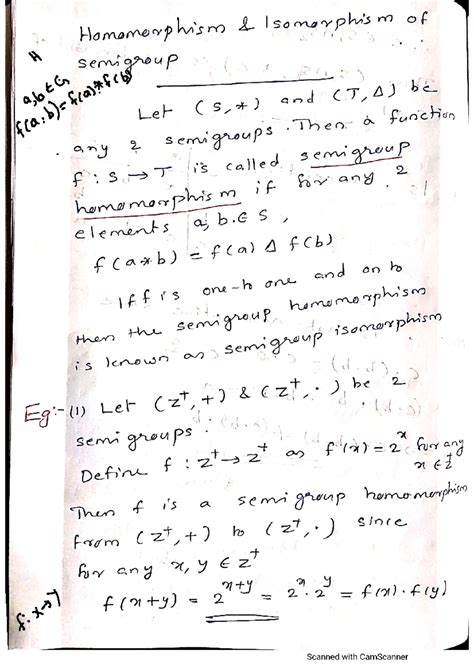 Homomorphism & Isomorphism of
semigroup
H
a,b ∈ G
f(a.b) = f(a)*f(b)
Let (S,*) and (T,Δ) be
any 2 semigroups. Then a function
f : S → T is called semigroup
homomorphism if for any 2
elements a, b ∈ S,
f(a*b) = f(a) Δ f(b)
If f is one-to one and on to
then the semigroup homomorphism
is known as semigroup isomorphism
Eg:- (1) Let (Z⁺, +) & (Z⁺, ·) be 2
semigroups.
Define f : Z⁺ → Z⁺ as f(x) = 2ˣ for any
x ∈ Z⁺
Then f is a semi group homomorphism
from (Z⁺, +) to (Z⁺, ·) since
for any x, y ∈ Z⁺
f(x+y) = 2ˣ⁺ʸ = 2ˣ·2ʸ = f(x)·f(y)
Scanned with CamScanner